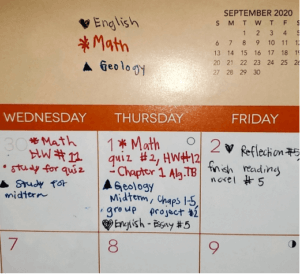 ♥ English
* Math
▲ Geology
SEPTEMBER 2020
S M T W T F S
1 2 3 4 5
6 7 8 9 10 11 12
13 14 15 16 17 18 19
20 21 22 23 24 25 26
27 28 29 30
WEDNESDAY THURSDAY FRIDAY
30 * Math
HW # 11
• study for quiz
▲ Study for
midterm
1 * Math
quiz #2, HW#12
- Chapter 1 Alg. TB
▲ Geology
Midterm, Chaps 1-5,
• group project #2
♥ English - Essay #5
2 ♥ Reflection #5
finish reading
novel #5
7 8 9